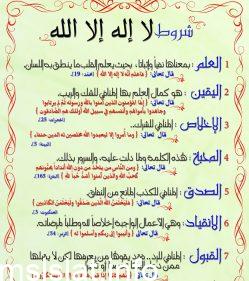 شروط لا إله إلا الله
1 العلم : بمعناها نفيا وإثباتا ، بحيث يعلم القلب ما ينطق به اللسان.
قال تعالى : { فاعلم أنه لا إله إلا الله } (محمد : 19).
2 اليقين : هو كمال العلم بها المنافي للشك والريب.
قال تعالى : { إنما المؤمنون الذين آمنوا بالله ورسوله ثم لم يرتابوا
وجاهدوا بأموالهم وأنفسهم في سبيل الله أولئك هم الصادقون }
(الحجرات : 15).
3 الإخلاص : المنافي للشرك..
قال تعالى : { وما أمروا إلا ليعبدوا الله مخلصين له الدين حنفاء }
(البينة : 5)
4 المحبة : لهذه الكلمة وما دلت عليه، والسرور بذلك.
قال تعالى : { ومن الناس من يتخذ من دون الله أندادا يحبونهم
كحب الله والذين آمنوا أشد حبا لله } (البقرة : 165).
5 الصدق : المنافي للكذب المانع من النفاق.
قال تعالى : { فليعلمن الله الذين صدقوا وليعلمن الكاذبين }
(العنكبوت : 3)
6 الانقياد : وهي الأعمال الواجبة إخلاصا لله وطلبا لمرضاته.
قال تعالى : { وأنيبوا إلى ربكم وأسلموا له } (الزمر : 54).
7 القبول : المنافي للرد.. وقد يعرفها من